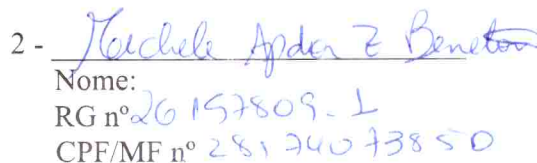 2 - Michele Apda Z Beneton
Nome:
RG nº 26157809-1
CPF/MF nº 28174073850